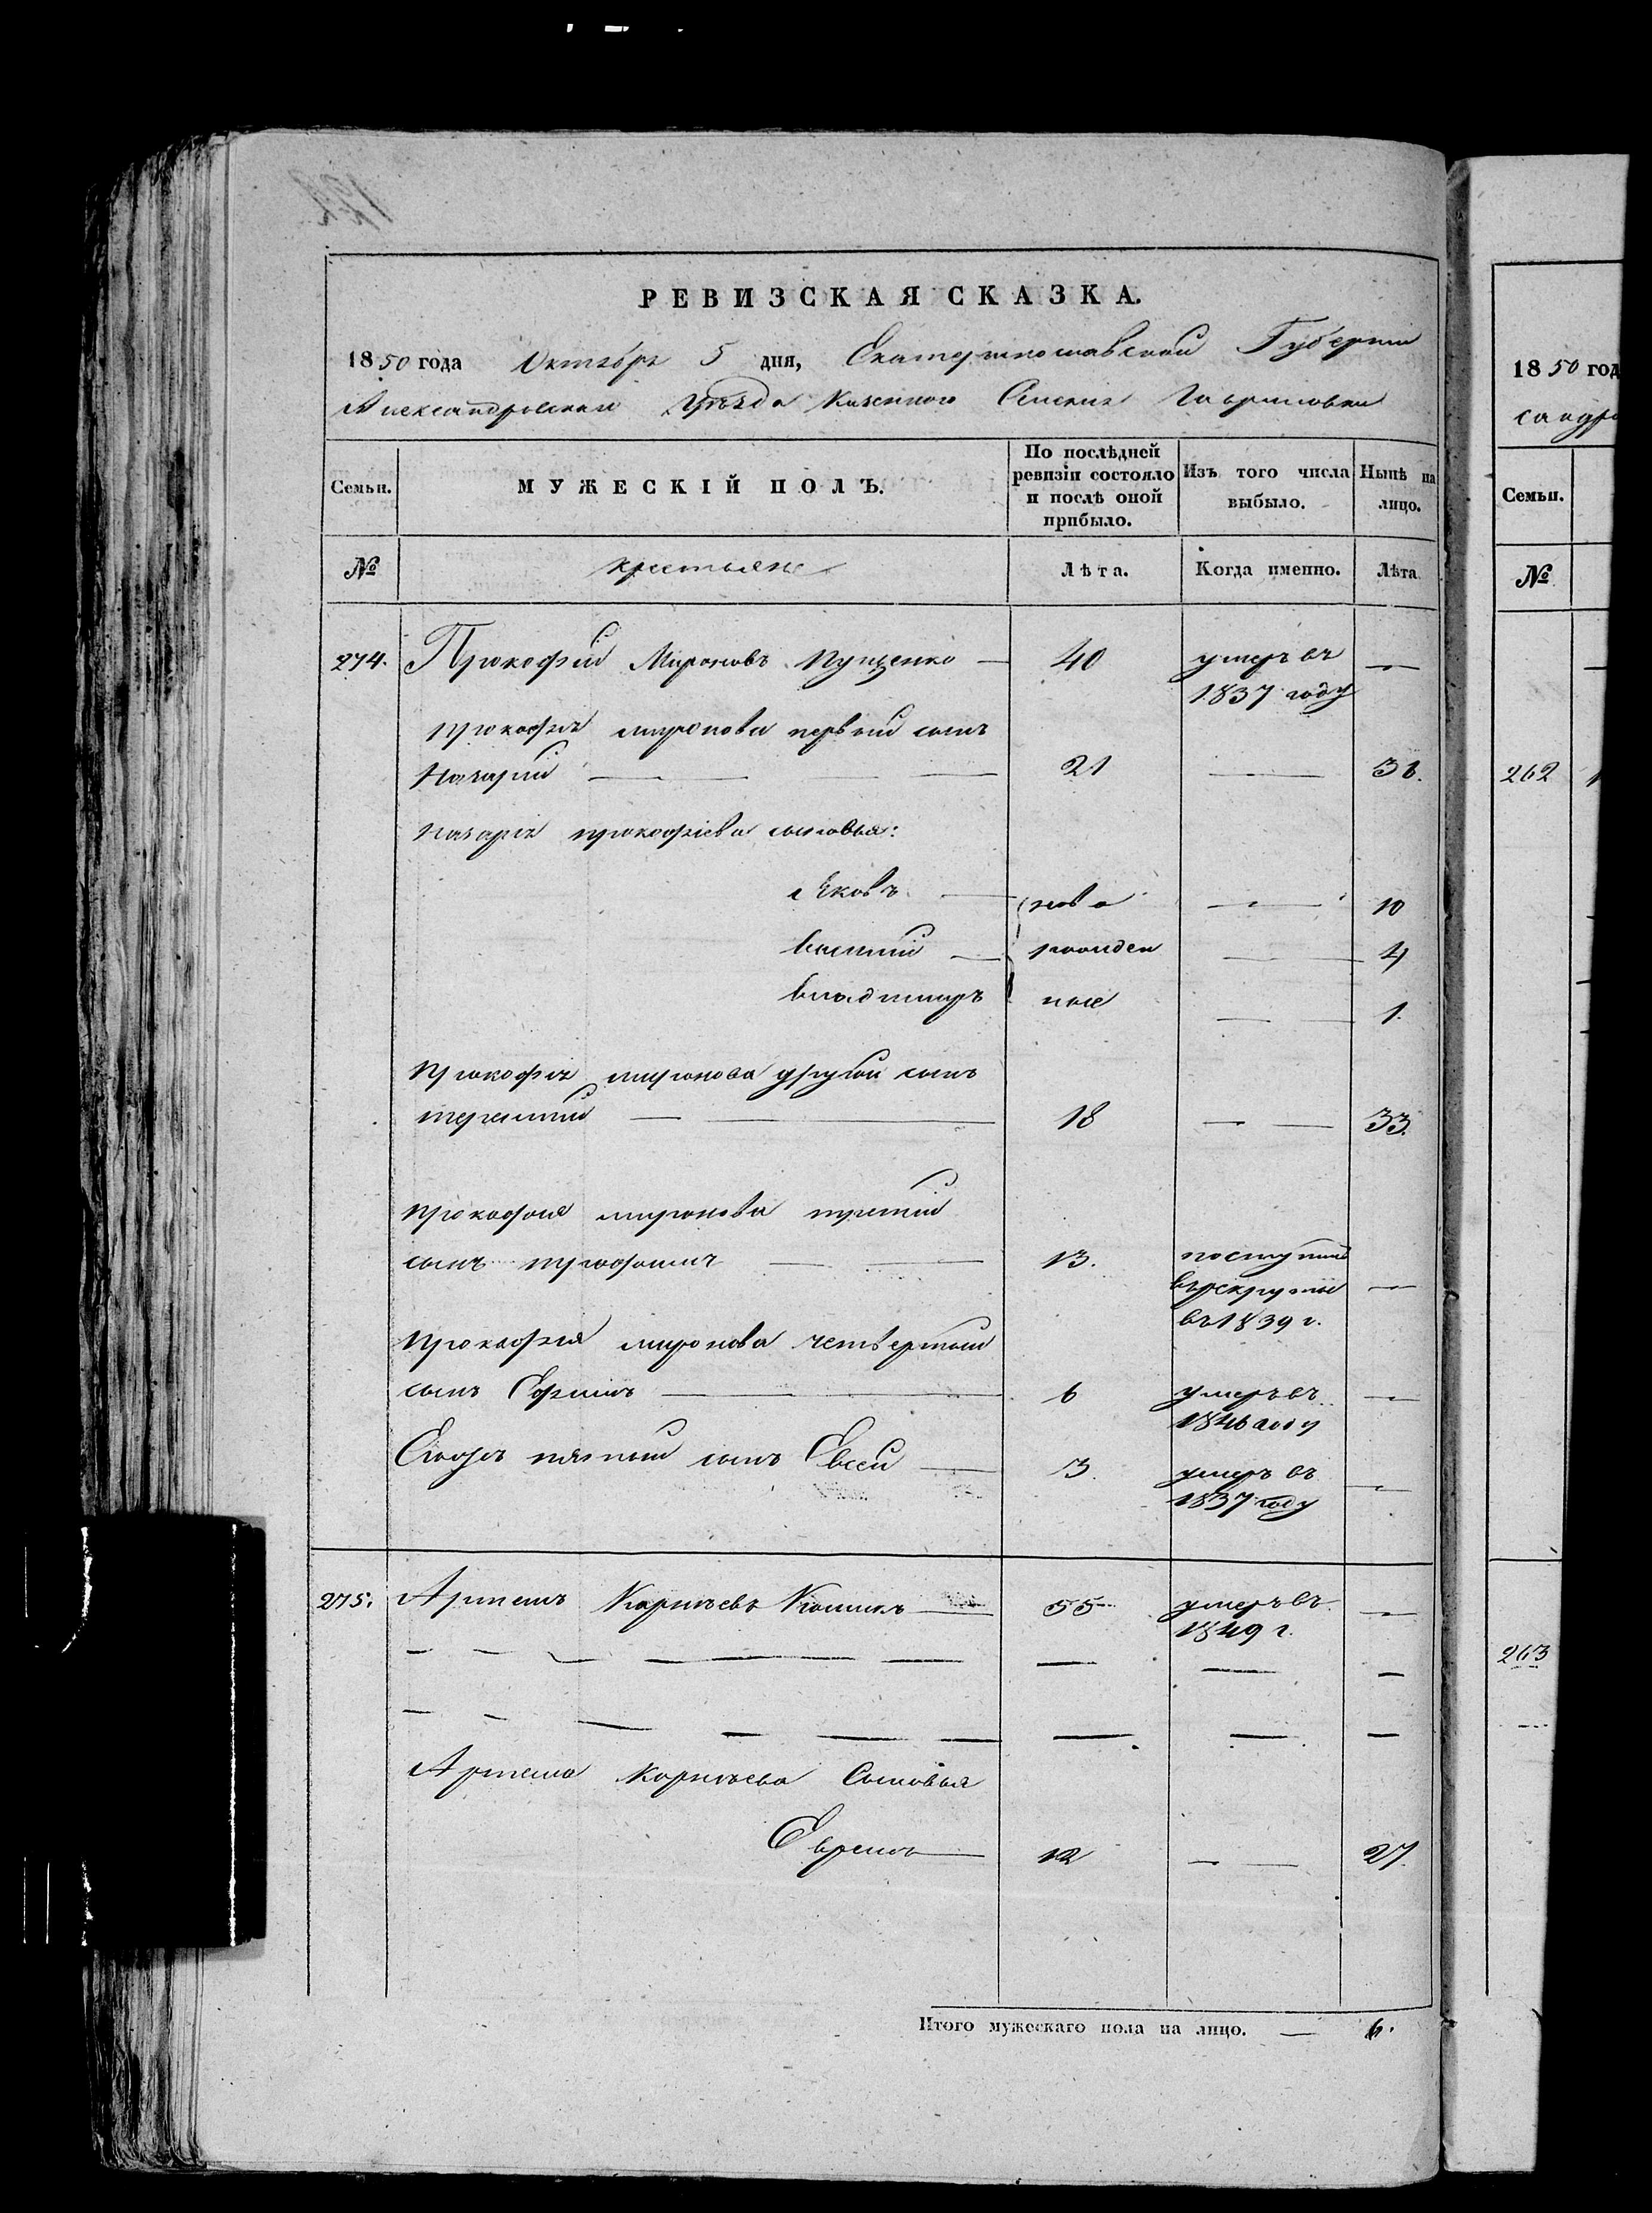 РЕВИЗСКАЯ СКАЗКА.
1850 года Октября 5 дня, Екатеринославской Губернии
Александровскаго Уѣзда Казенного Селенія Гавриловки
Семьи. МУЖЕСКІЙ ПОЛЪ. По послѣдней ревизіи состояло и послѣ оной прибыло. Изъ того числа выбыло. Нынѣ на лицо.
№ крестьяне Лѣта. Когда именно. Лѣта
274. Прокофій Мироновъ Пущенко — 40 умеръ въ —
1837 году
прокофія миронова первый сынъ
Назарий — 21 — 36.
назарія прокофіева сыновья:
Яковъ — ново — 10
василий — рожден — 4
владимиръ ные — 1.
прокофія миронова другой сынъ
терентий — 18 — 33.
прокофія миронова третий
сынъ трофимъ — 13. поступилъ
въ рекруты —
въ 1839 г.
прокофія миронова четвертый
сынъ Ефимъ — 6 умеръ въ —
1846 году
Его пятый сынъ Евсей — 3. умеръ въ —
1837 году
275. Артемъ Корнѣевъ — 55 умеръ въ —
1849 г.
Артема Корнѣева Сыновья
Ефремъ — 12 — 27.
Итого мужескаго пола на лицо. — 6.
1850 год
сандро
Семьи.
№
262
263